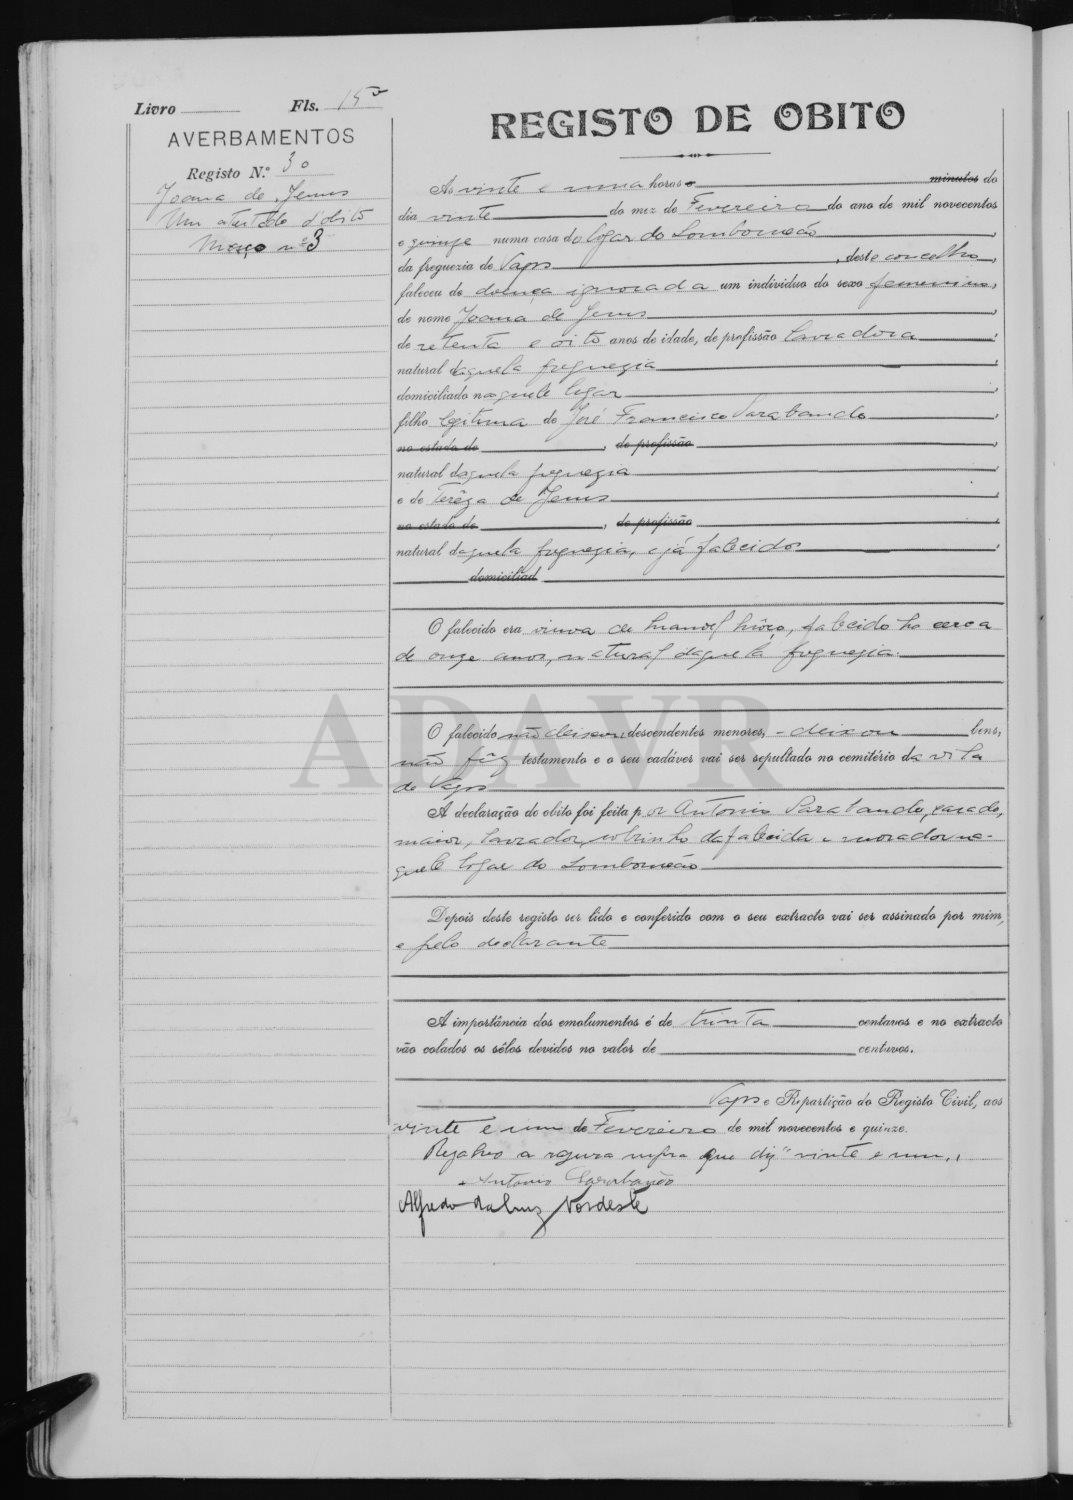 Livro Fls. 15v
REGISTO DE OBITO
AVERBAMENTOS
Registo N.º 30
Joana de Jesus
Um atestado d'obito
Março nº 3
As vinte e uma horas e minutos do
dia vinte do mez de Fevereiro do ano de mil novecentos
e quinze numa casa do logar do Lombomeão,
da freguezia de Vagos, deste concelho,
faleceu de doença ignorada um individuo do sexo femenino,
de nome Joana de Jesus,
de setenta e oito anos de idade, de profissão lavradora,
natural daquela freguezia
domiciliado naquele logar,
filho legitima de José Francisco Sarabando,
no estado de, de profissão,
natural daquela freguezia,
e de Terêza de Jesus,
no estado de, de profissão,
natural daquela freguezia, e já falecidos,
domiciliad
O falecido era viuva de Manoel, falecido ha cerca
de onze anos, natural daquela freguezia.
O falecido não deixou descendentes menores, deixou bens,
não fêz testamento e o seu cadáver vai ser sepultado no cemitério da vila
de Vagos
A declaração do obito foi feita por Antonio Sarabando, casado,
maior, lavrador, sobrinho da falecida e morador na-
quele logar do Lombomeão
Depois deste registo ser lido e conferido com o seu extracto vai ser assinado por mim,
e pelo declarante
A importância dos emolumentos é de trinta centavos e no extracto
vão colados os sêlos devidos no valor de centavos.
Vagos e Repartição do Registo Civil, aos
vinte e um de Fevereiro de mil novecentos e quinze.
Resalvo a rasura supra que diz "vinte e um,,
Antonio Sarabando
Alfredo da Cruz Nordeste
ADAVR